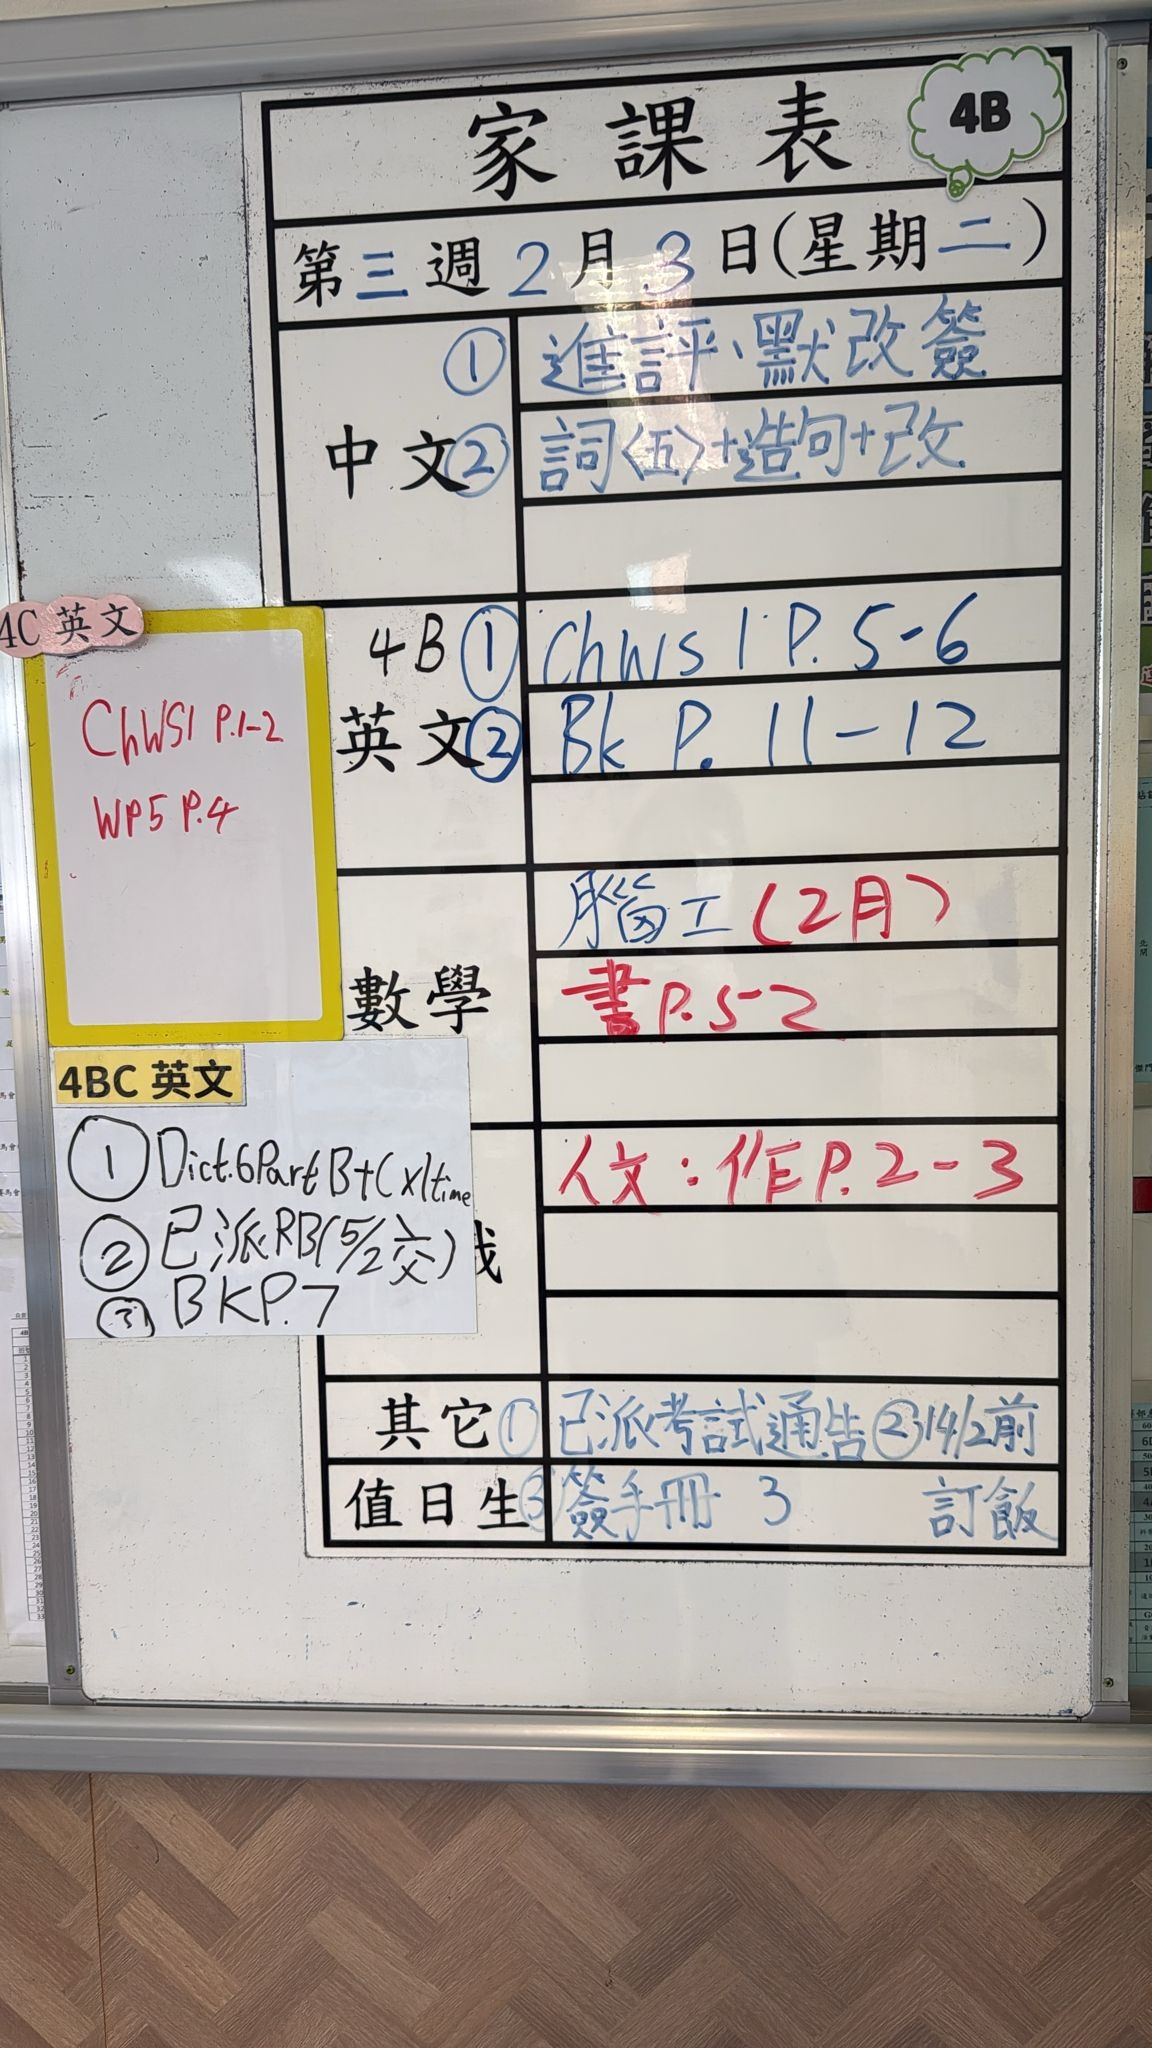 家課表
4B
第三週 2月3日(星期二)
中文
① 進評、默改簽
② 詞〈五〉+造句+改
4B 英文
① ChWS 1 P. 5-6
② Bk P. 11-12
4C 英文
ChWS1 P.1-2
WP5 P.4
數學
腦工(2月)
書P.52
4BC 英文
① Dict.6 Part B+C x1time
② 已派RB(5/2交)
③ BKP.7
人文:作P.2-3
其它 ① 已派考試通告 ② 14/2前
訂飯
值日生 ③ 簽手冊 3